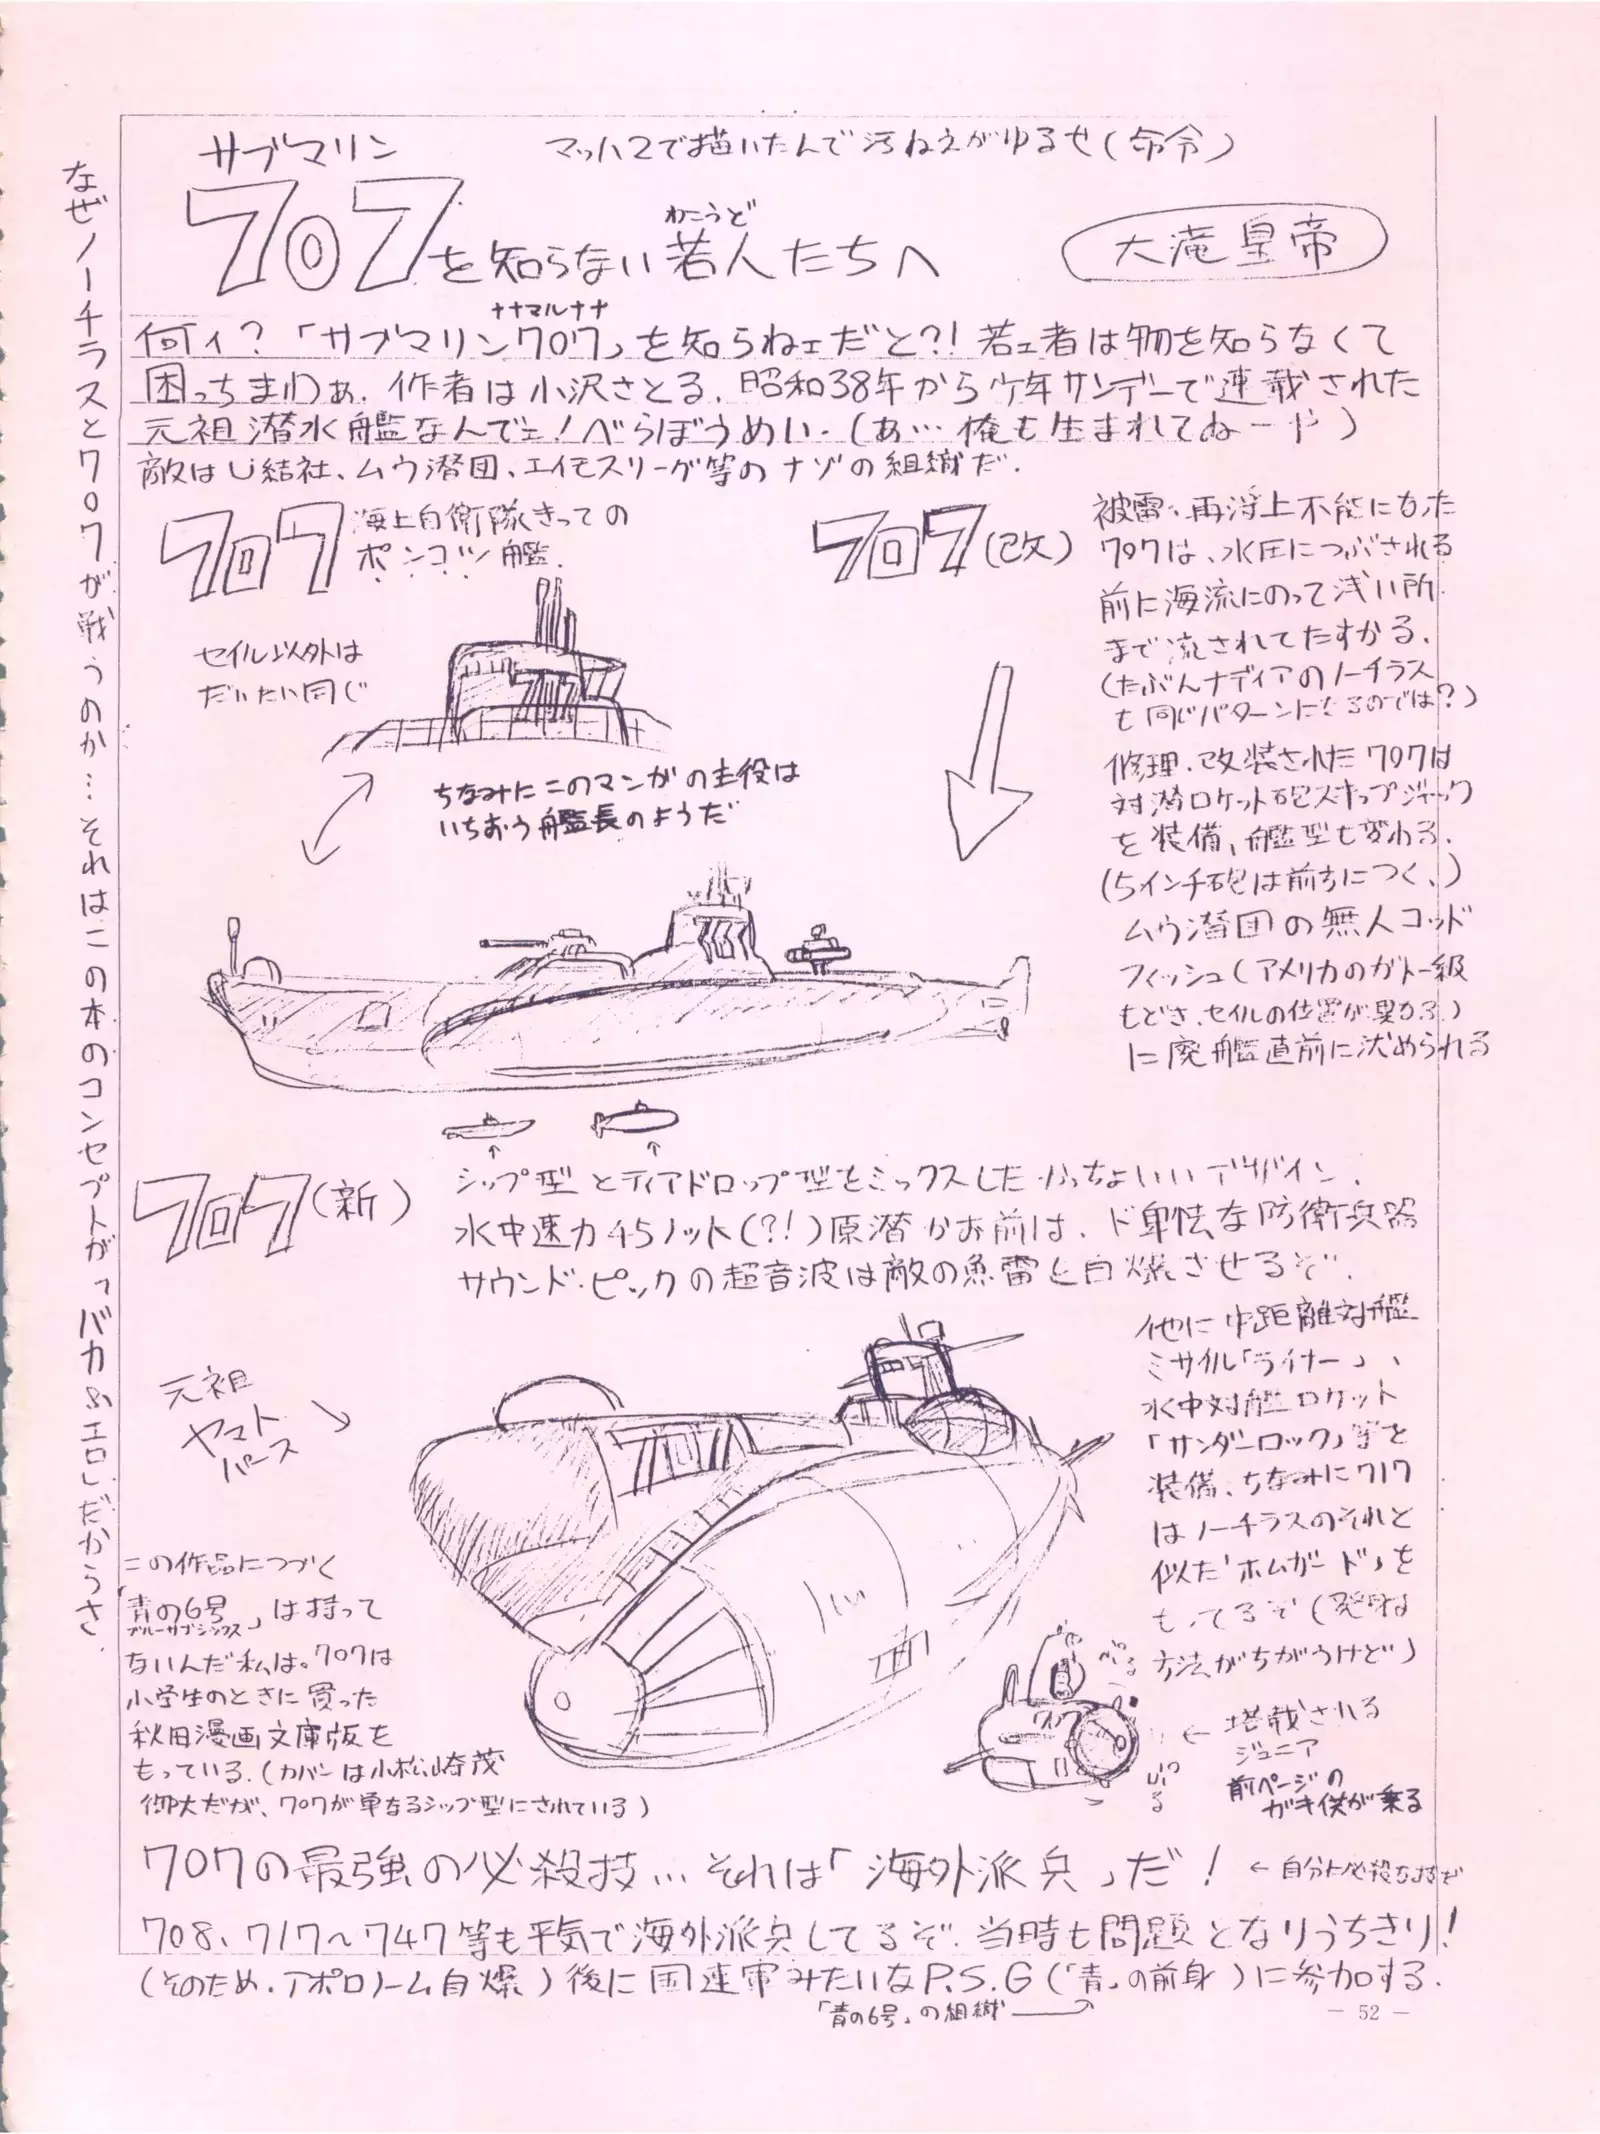 サブマリン
マッハ2で描いたんで汚ねえがゆるせ(命令)
707を知らない若人たちへ
わこうど
大滝皇帝
ナナマルナナ
何ィ?「サブマリン707」を知らねェだと?!若ェ者は物を知らなくて
困っちまわぁ.作者は小沢さとる.昭和38年から少年サンデーで連載された
元祖潜水艦なんでェ!べらぼうめい.(あ…俺も生まれてねーや)
敵はU結社、ムウ潜団、エイモスリーグ等のナゾの組織だ.
707
海上自衛隊きっての
ポンコツ艦.
セイル以外は
だいたい同じ
ちなみにこのマンガの主役は
いちおう艦長のようだ
707(改)
被雷、再浮上不能になった
707は、水圧につぶされる
前に海流にのって浅い所
まで流されてたすかる.
(たぶんナディアのノーチラス
も同じパターンになるのでは?)
修理、改装された707は
対潜ロケット砲スキップジャック
を装備、艦型も変わる.
(5インチ砲は前方につく、)
ムウ潜団の無人コッド
フィッシュ(アメリカのガトー級
もどき、セイルの位置が異なる.)
に廃艦直前に沈められる
707
707(新)
シップ型とティアドロップ型をミックスしたかっちょいいデザイン.
水中速力45ノット(?!)原潜かお前は.ド卑怯な防衛兵器
サウンド・ピックの超音波は敵の魚雷を自爆させるぞ.
元祖
ヤマト
パース
707
他に中距離対艦
ミサイル「ライナー」、
水中対艦ロケット
「サンダーロック」等を
装備、ちなみに717
はノーチラスのそれと
似た「ホムガード」を
もってるぞ(発射
方法がちがうけど)
707
搭載される
ジュニア
前ページの
ガキ供が乗る
この作品につづく
「青の6号」は持って
ブルーサブシックス
ないんだ私は。707は
小学生のときに買った
秋田漫画文庫版を
もっている.(カバーは小松崎茂
御大だが、707が単なるシップ型にされている)
707の最強の必殺技…それは「海外派兵」だ!
708、717～747等も平気で海外派兵してるぞ.当時も問題となりうちきり!
(そのため、アポロノーム自爆)後に国連軍みたいなP.S.G(「青」の前身)に参加する.
「青の6号」の組織
なぜノーチラスと707が戦うのか…それはこの本のコンセプトが「バカ&エロ」だからさ.
— 52 —